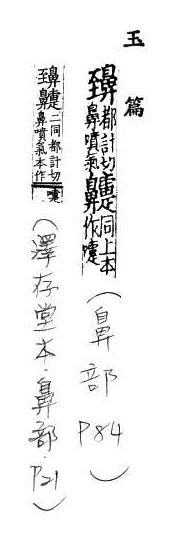 玉篇
都計切鼻噴氣
同上本作嚔
(鼻部 P84)
二同都計切
鼻噴氣本作
嚔
(澤存堂本·鼻部·P21)